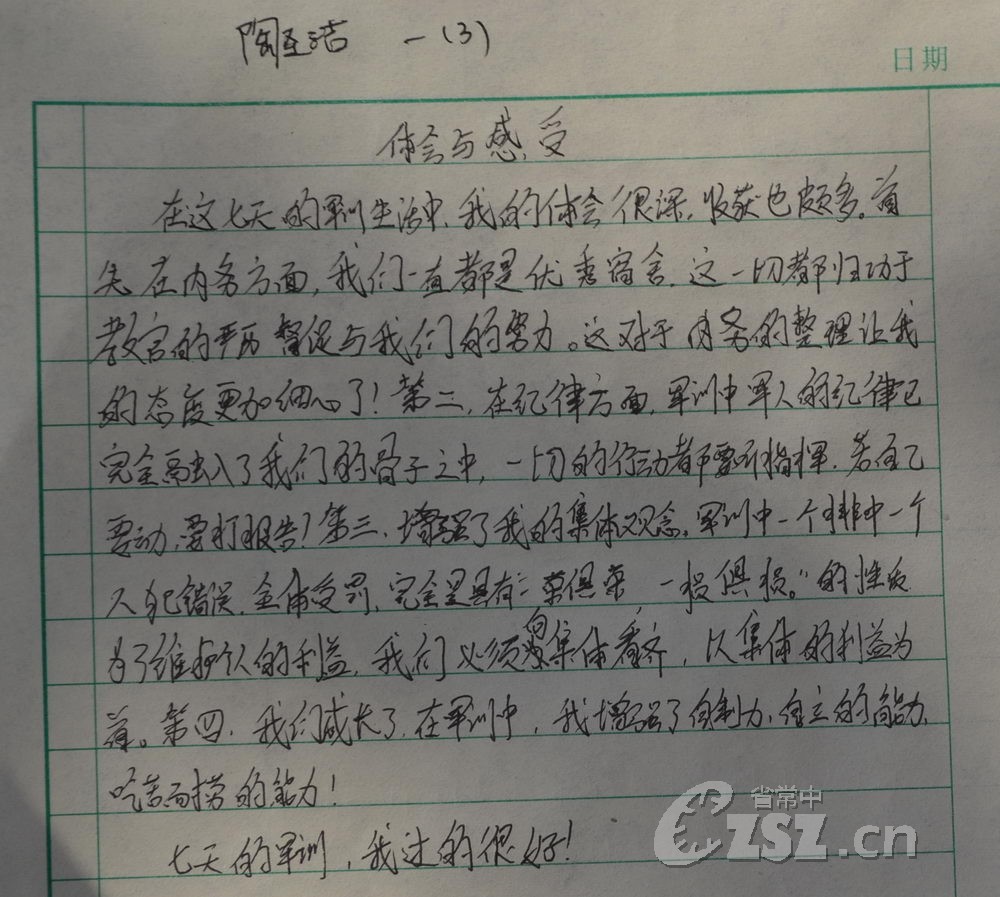 陶玉洁 一(3)
日期
体会与感受
在这七天的军训生活中,我的体会很深,收获也颇多。首
先在内务方面,我们一直都是优秀宿舍.这一切都归功于
教官的严厉督促与我们的努力。这对于内务的整理让我
的态度更加细心了!第二,在纪律方面,军训中军人的纪律已
完全融入了我们的骨子之中,一切的行动都要听指挥.若自己
要动,要打报告!第三,增强了我的集体观念.军训中一个排中一个
人犯错误.全体受罚,完全是具有“一荣俱荣 一损俱损。”的性质
为了维护个人的利益,我们必须向集体看齐,以集体的利益为
首。第四,我们成长了.在军训中,我增强了自制力.自立的能力,
吃苦而捞的能力!
七天的军训,我过的很好!
省常中
CZSZ.cn